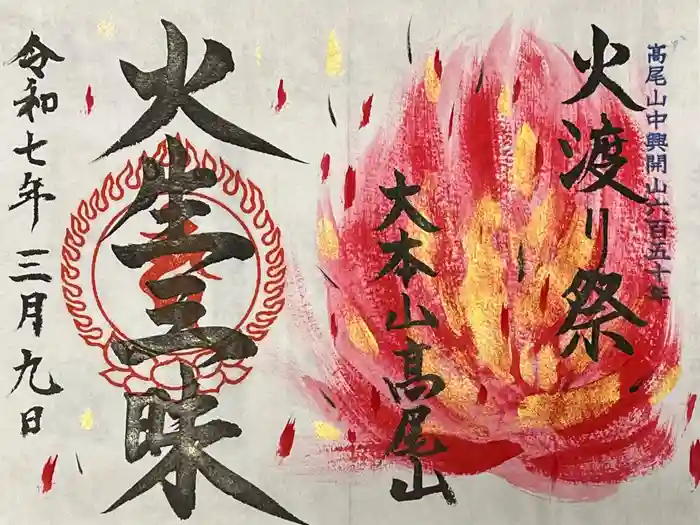 髙尾山中興開山六百五十年
火渡り祭
大本山髙尾山
火生三昧
令和七年 三月九日